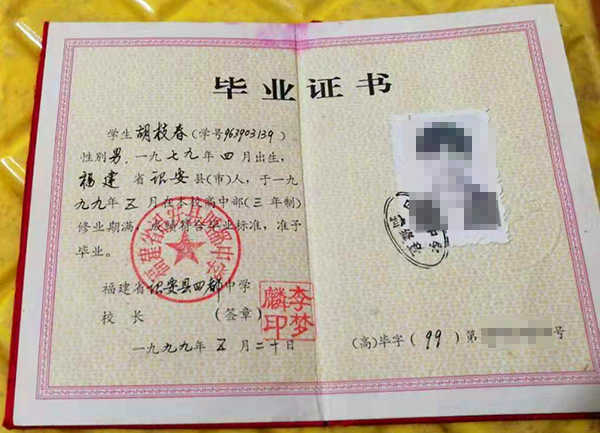 毕业证书
学生胡枝春(学号963903139)。
性别男,一九七九年四月出生,
福建省诏安县(市)人,于一九
九九年五月在本校高中部(三年制)
修业期满,成绩符合毕业标准,准予
毕业。
福建省诏安县四都中学
校长 (签章)
李梦麟印
一九九九年五月二十日
福建省诏安县四都中学
(高)毕字(99)第 号